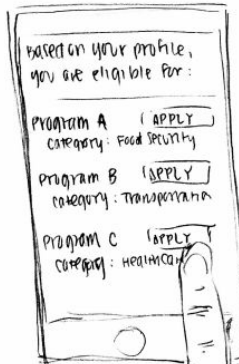 Based on your profile,
you are eligible for:
Program A APPLY
Category: Food Security
Program B APPLY
Category:
Program C APPLY
Category: